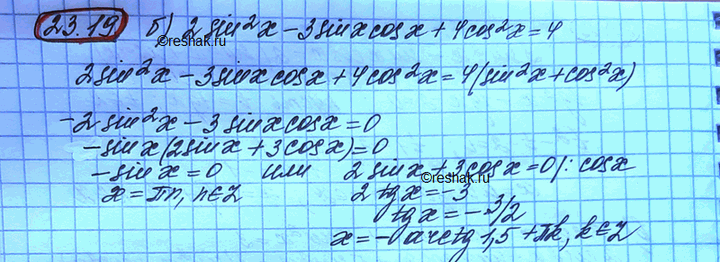 23.19 б) 2 sin²x - 3 sin x cos x + 4 cos²x = 4
©reshak.ru
2 sin²x - 3 sin x cos x + 4 cos²x = 4(sin²x + cos²x)
-2 sin²x - 3 sin x cos x = 0
-sin x (2 sin x + 3 cos x) = 0
-sin x = 0 или 2 sin x + 3 cos x = 0 /: cos x
©reshak.ru
x = πn, n ∈ Z 2 tg x = -3
tg x = -3/2
x = - arctg 1,5 + πk, k ∈ Z